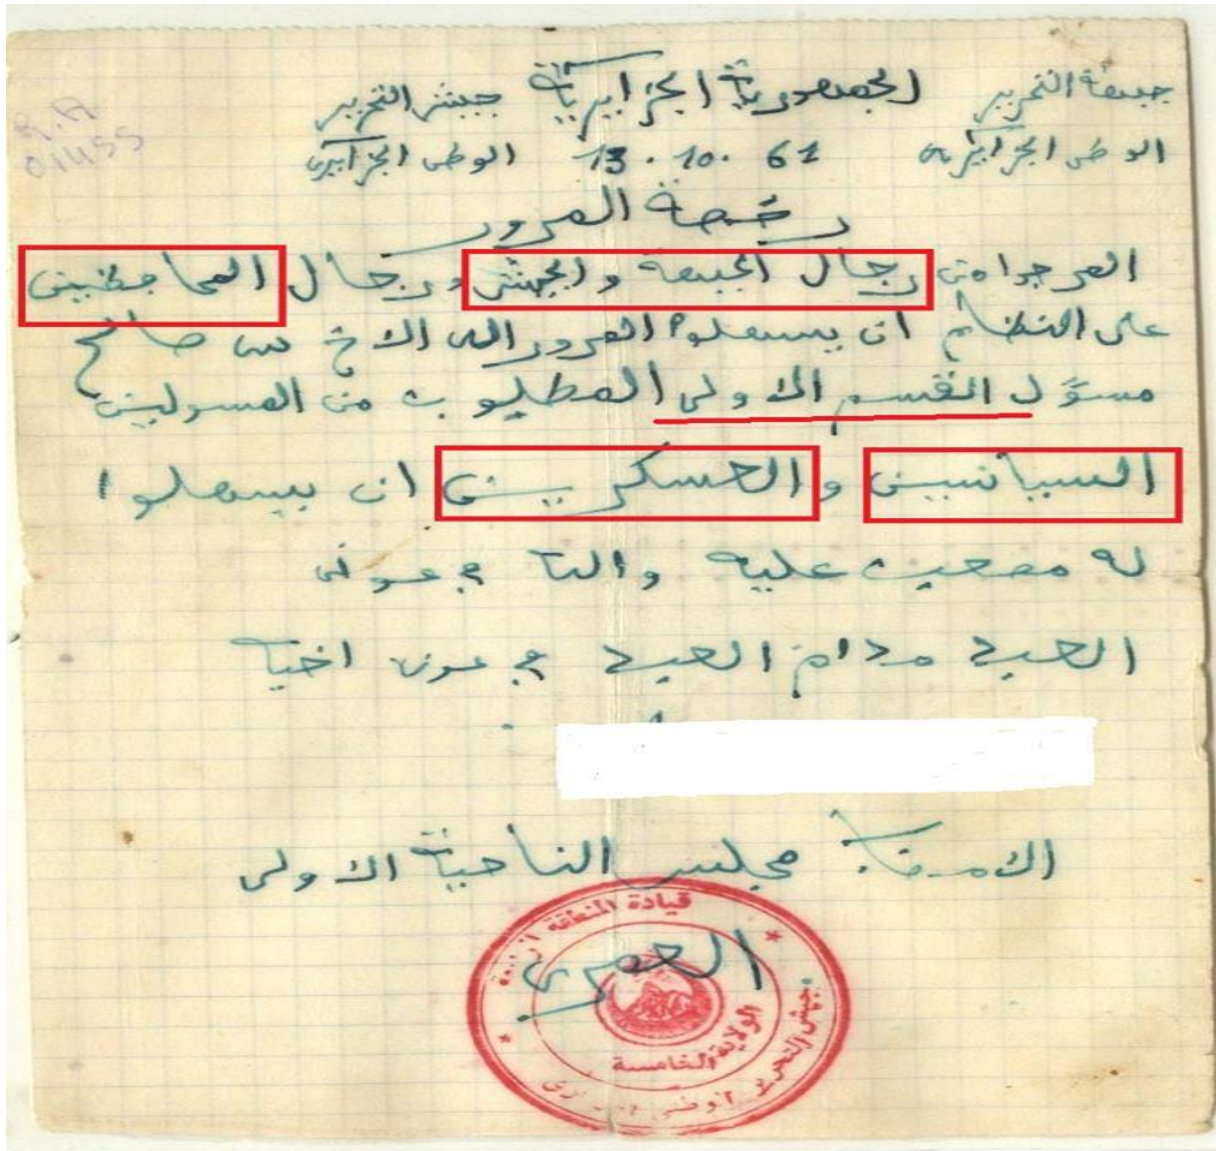 جبهة التحرير الجمهورية الجزايرية جيش التحرير
الوطى الجزايرى 13.10.61 الوطى الجزايرى
رخصة المرور
المرجوا من رجال الجبهة والجيش ورجال المحافظين
على النظام ان يسهلوا المرور الى الاخ بن صالح
مسؤل القسم الاولى المطلوب من المسولين
السياسيين والعسكريين ان يسهلوا
له مصعب عليه والله في عون
العبد مدام العبد في عون اخيه
الامضا مجلس الناحية الاولى
العمرى
قيادة المنطقة
الولاية الخامسة
جيش التحرير الوطني
R.A
01455